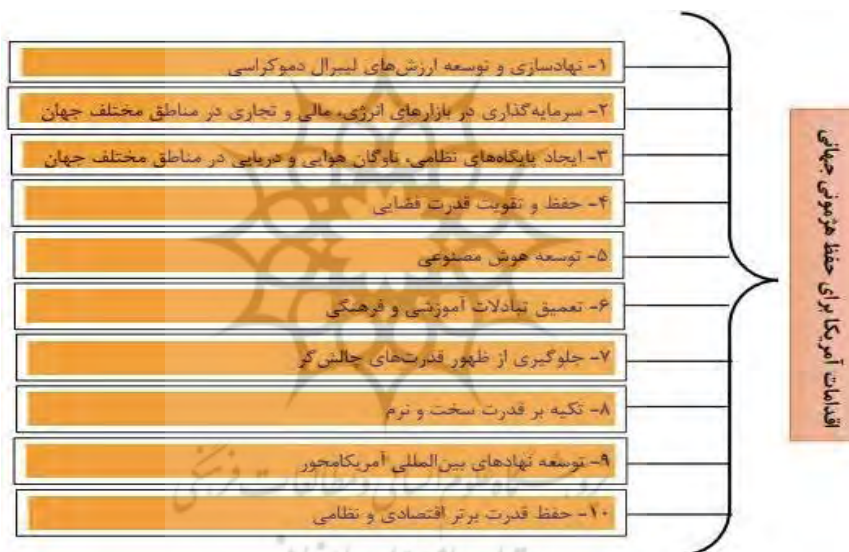 اقدامات آمریکا برای حفظ هژمونی جهانی
۱- نهادسازی و توسعه ارزش‌های لیبرال دموکراسی
۲- سرمایه‌گذاری در بازارهای انرژی، مالی و تجاری در مناطق مختلف جهان
۳- ایجاد پایگاه‌های نظامی، ناوگان هوایی و دریایی در مناطق مختلف جهان
۴- حفظ و تقویت قدرت فضایی
۵- توسعه هوش مصنوعی
۶- تعمیق تبادلات آموزشی و فرهنگی
۷- جلوگیری از ظهور قدرت‌های چالش‌گر
۸- تکیه بر قدرت سخت و نرم
۹- توسعه نهادهای بین‌المللی آمریکامحور
۱۰- حفظ قدرت برتر اقتصادی و نظامی
پژوهشگاه علوم انسانی و مطالعات فرهنگی